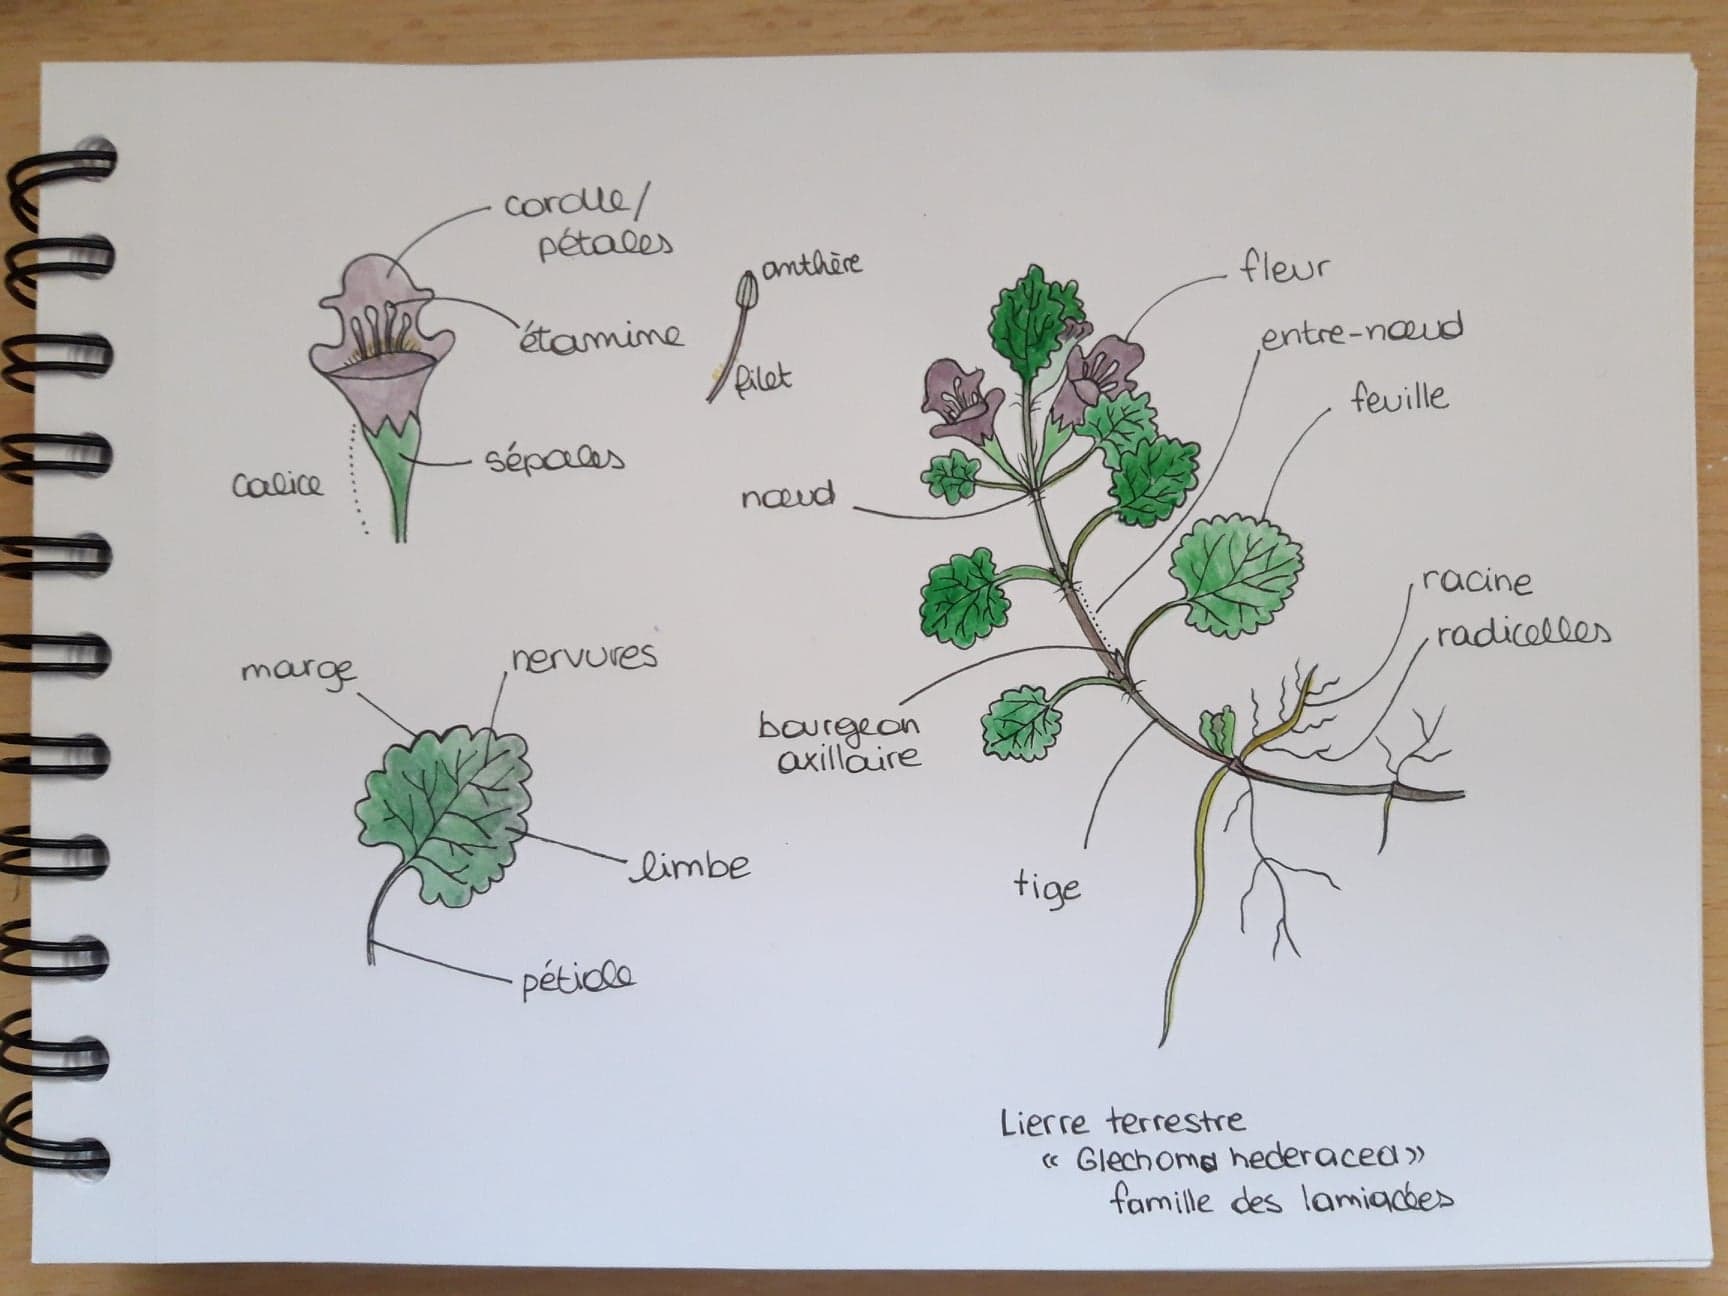 corolle/
pétales
étamine
anthère
filet
calice
sépales
marge
nervures
limbe
pétiole
fleur
entre-nœud
feuille
nœud
racine
radicelles
bourgeon
axillaire
tige
Lierre terrestre
« Glechoma hederacea »
famille des lamiacées